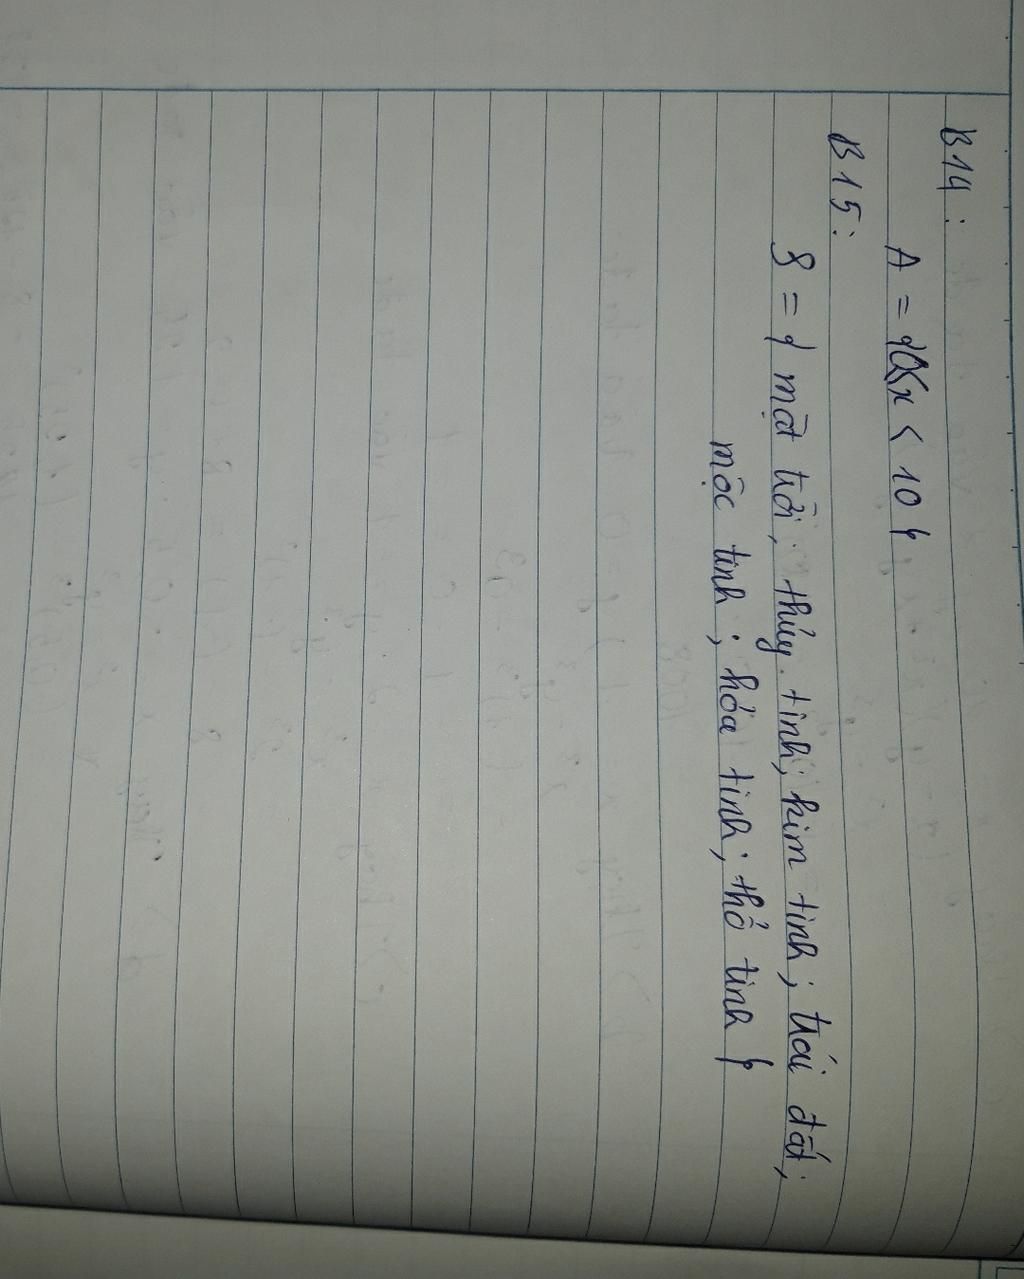 B14:
A = {0<x < 10}
B15:
S = { mặt trời; thủy tinh; kim tinh; trái đất;
mộc tinh; hỏa tinh; thổ tinh }